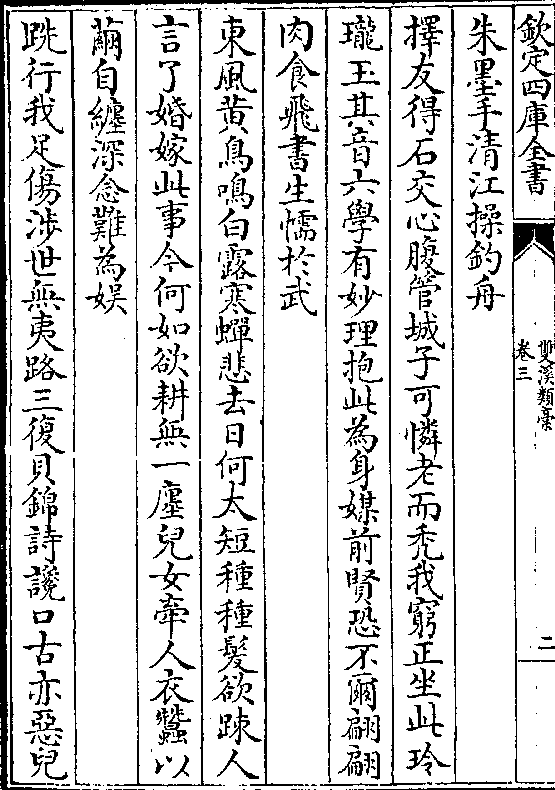 欽定四庫全書
雙溪類稾
卷三
二
朱墨手清江操釣舟
擇友得石交心腹管城子可憐老而秃我窮正坐此玲
瓏玉其音六學有妙理抱此為身媒前賢恐不爾翩翩
肉食飛書生懦於武
東風黄鳥鳴白露寒蟬悲去日何太短種種髮欲踈人
言了婚嫁此事今何如欲耕無一廛兒女牽人衣蠶以
繭自纏深念難為娱
跣行我足傷涉世無夷路三復貝錦詩讒口古亦惡兒